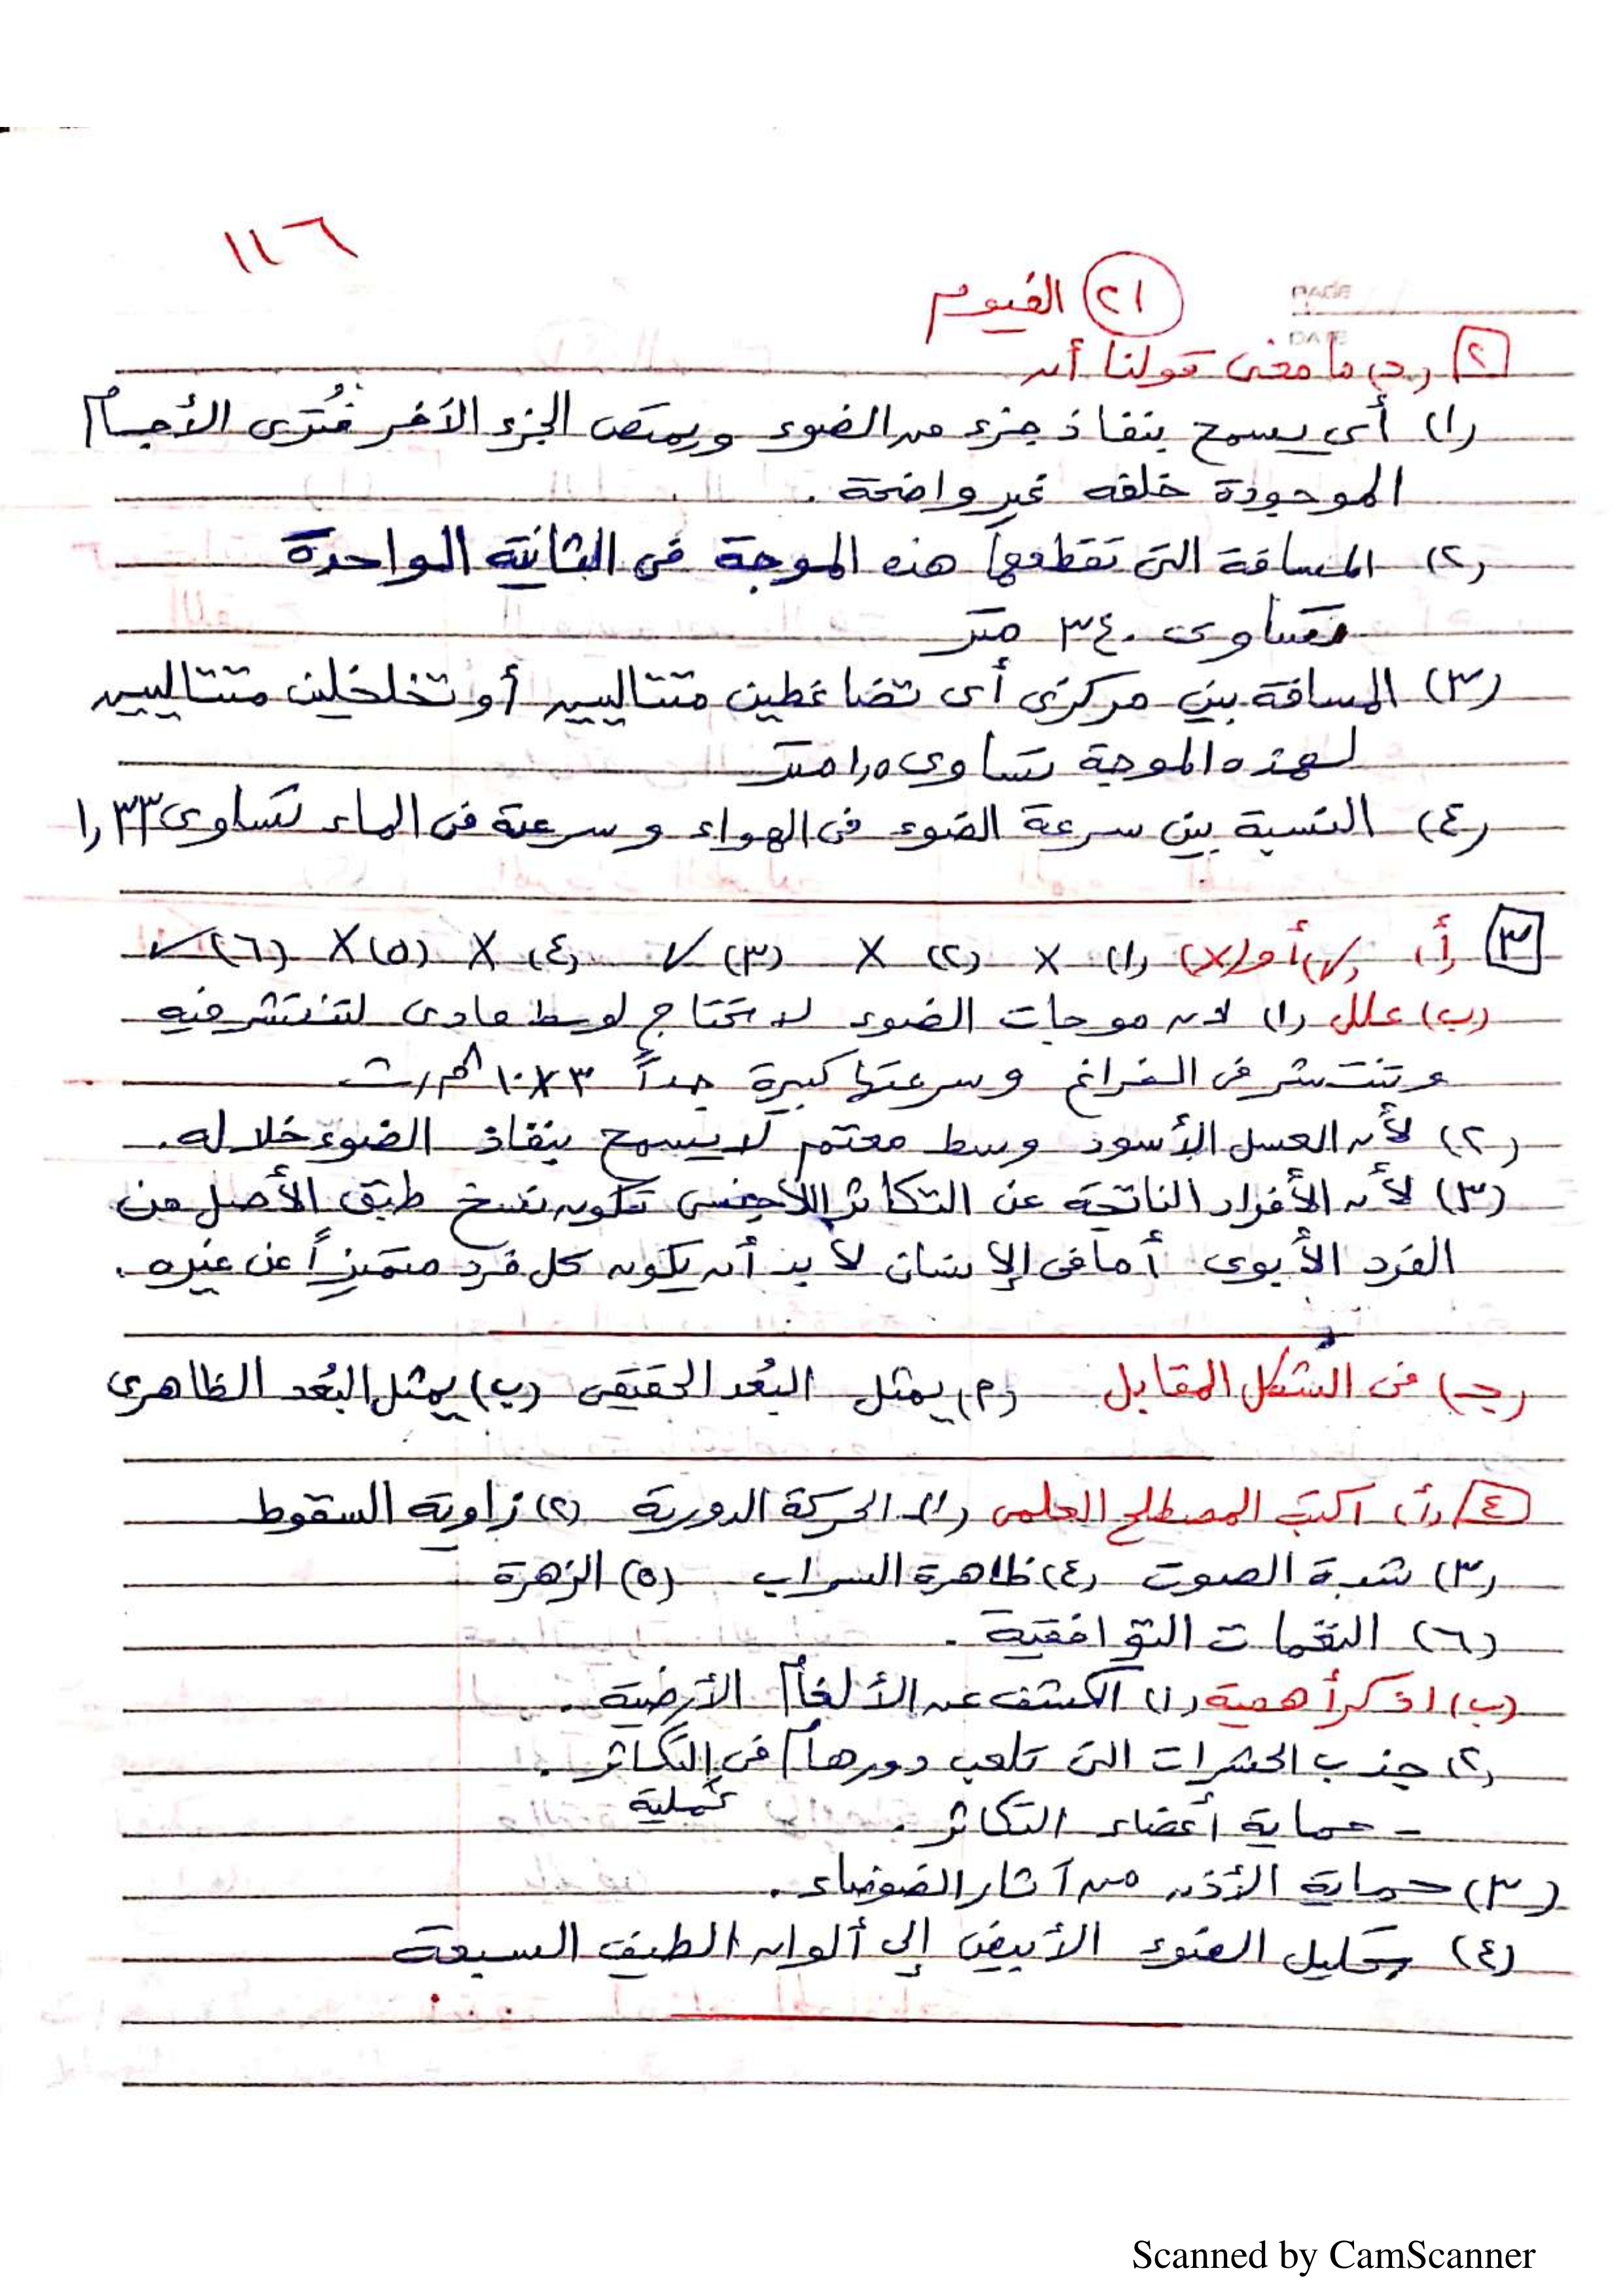 ١١٦
(٢١) الفيوم
٢ (د) ما معنى قولنا أن
(١) أى يسمح بنفاذ جزء من الضوء ويمتص الجزء الآخر فتُرى الأجسام
الموجودة خلفه غير واضحة .
(٢) المسافة التى تقطعها هذه الموجة فى الثانية الواحدة
تساوى ٣٤٠ متر
(٣) المسافة بين مركزى أى تضاغطين متتاليين أو تخلخلين متتاليين
لهذه الموجة تساوى ١٫٥ متر
(٤) النسبة بين سرعة الضوء فى الهواء وسرعة فى الماء تساوى ١٫٣٣
٣ (أ) (✓) أو (X) (١) X (٢) X (٣) ✓ (٤) X (٥) X (٦) ✓
(ب) علل (١) لأن موجات الضوء لا تحتاج لوسط مادى لتنتشر فيه
وتنتشر فى الفراغ وسرعتها كبيرة جداً ٣×١٠^٨ م/ث
(٢) لأن العسل الأسود وسط معتم لا يسمح بنفاذ الضوء خلاله .
(٣) لأن الأفراد الناتجة عن التكاثر اللاجنسى تكون نسخ طبق الأصل من
الفرد الأبوى أما فى الإنسان لا بد أن يكون كل فرد متميزاً عن غيره .
(جـ) فى الشكل المقابل (م) يمثل البُعد الحقيقى (ب) يمثل البُعد الظاهرى
٤ (أ) اكتب المصطلح العلمى (١) الحركة الدورية (٢) زاوية السقوط
(٣) شدة الصوت (٤) ظاهرة السراب (٥) الزهرة
(٦) النغمات التوافقية .
(ب) اذكر أهمية (١) الكشف عن الألغام الأرضية .
(٢) جذب الحشرات التى تلعب دورها فى عملية التكاثر .
- حماية أعضاء التكاثر .
(٣) حماية الأذن من آثار الضوضاء .
(٤) تحليل الضوء الأبيض إلى ألوان الطيف السبعة
Scanned by CamScanner